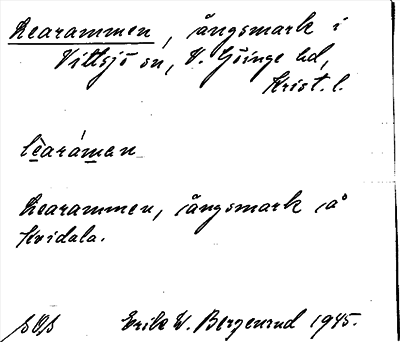 Learammen, ängsmark i
Vittsjö sn, V. Göinge hd,
Krist. l.
learámen
Learammen, ängsmark på
Hvidala.
Erik W. Bergenrud 1945.